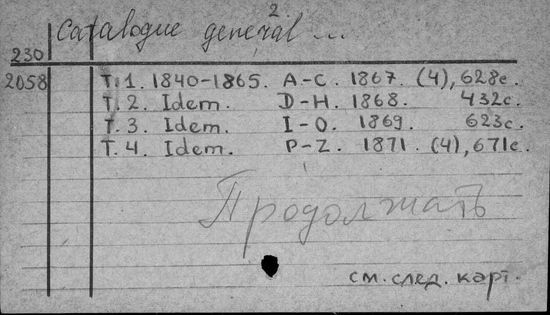 2.
Catalogue general ...
230
2058 T. 1. 1840-1865. A-C. 1867. (4), 628с.
T. 2. Idem. D-H. 1868. 432с.
T. 3. Idem. I-O. 1869. 623с.
T. 4. Idem. P-Z. 1871. (4), 671с.
Продолжать
см. след. карт.